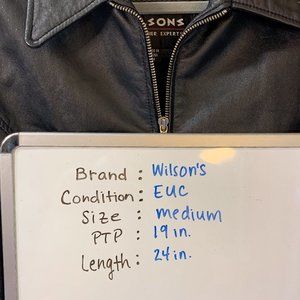 SONS
HER EXPERTS
Brand : Wilson's
Condition : EUC
Size : medium
PTP : 19 in.
Length : 24 in.